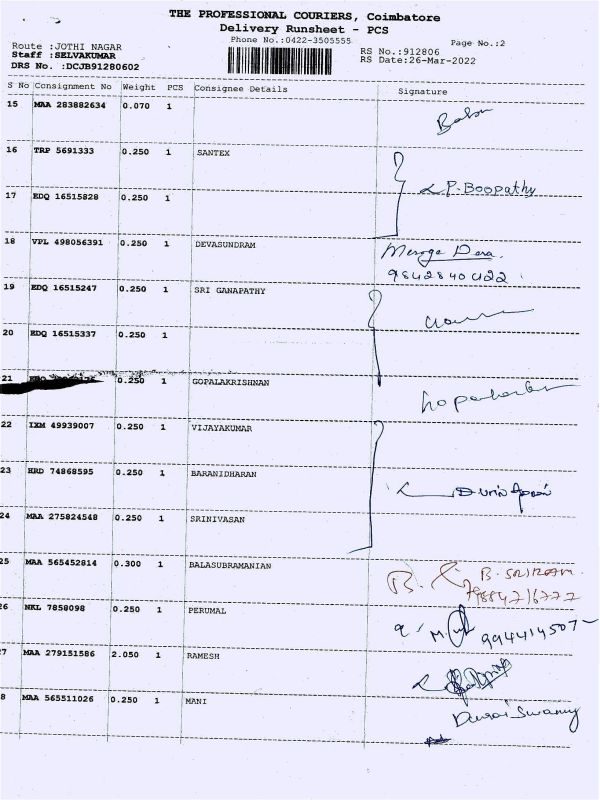 THE PROFESSIONAL COURIERS, Coimbatore
Delivery Runsheet - PCS
Phone No.:0422-3505555
Page No.:2
Route :JOTHI NAGAR
RS No.:912806
Staff :SELVAKUMAR
RS Date:26-Mar-2022
DRS No. :DCJB91280602
S No Consignment No Weight PCS Consignee Details Signature
15 MAA 283882634 0.070 1
Babu
16 TRP 5691333 0.250 1 SANTEX
P. Boopathy
17 EDQ 16515828 0.250 1
18 VPL 498056391 0.250 1 DEVASUNDRAM
9842840422
19 EDQ 16515247 0.250 1 SRI GANAPATHY
20 EDQ 16515337 0.250 1
21 0.250 1 GOPALAKRISHNAN
22 IXM 49939007 0.250 1 VIJAYAKUMAR
23 HRD 74868595 0.250 1 BARANIDHARAN
24 MAA 275824548 0.250 1 SRINIVASAN
25 MAA 565452814 0.300 1 BALASUBRAMANIAN
B. SRIRAM
26 NKL 7858098 0.250 1 PERUMAL
27 MAA 279151586 2.050 1 RAMESH
28 MAA 565511026 0.250 1 MANI
Durai Swamy